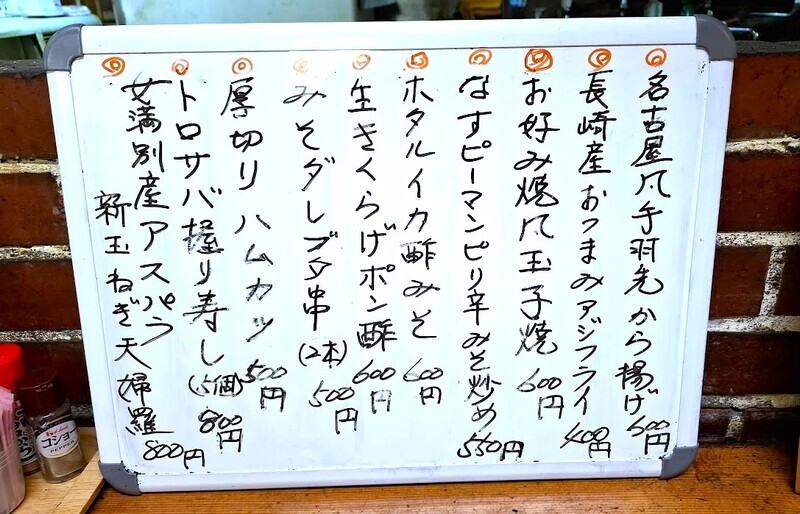 名古屋風手羽先から揚げ 600円
長崎産おつまみアジフライ 400円
お好み焼風玉子焼 600円
なすピーマンピリ辛みそ炒め 550円
ホタルイカ酢みそ 600円
生きくらげポン酢 600円
みそダレブタ串(2本) 500円
厚切りハムカツ 500円
トロサバ握り寿し(5個) 800円
女満別産アスパラ
新玉ねぎ天婦羅 800円
コショー
PEPPER